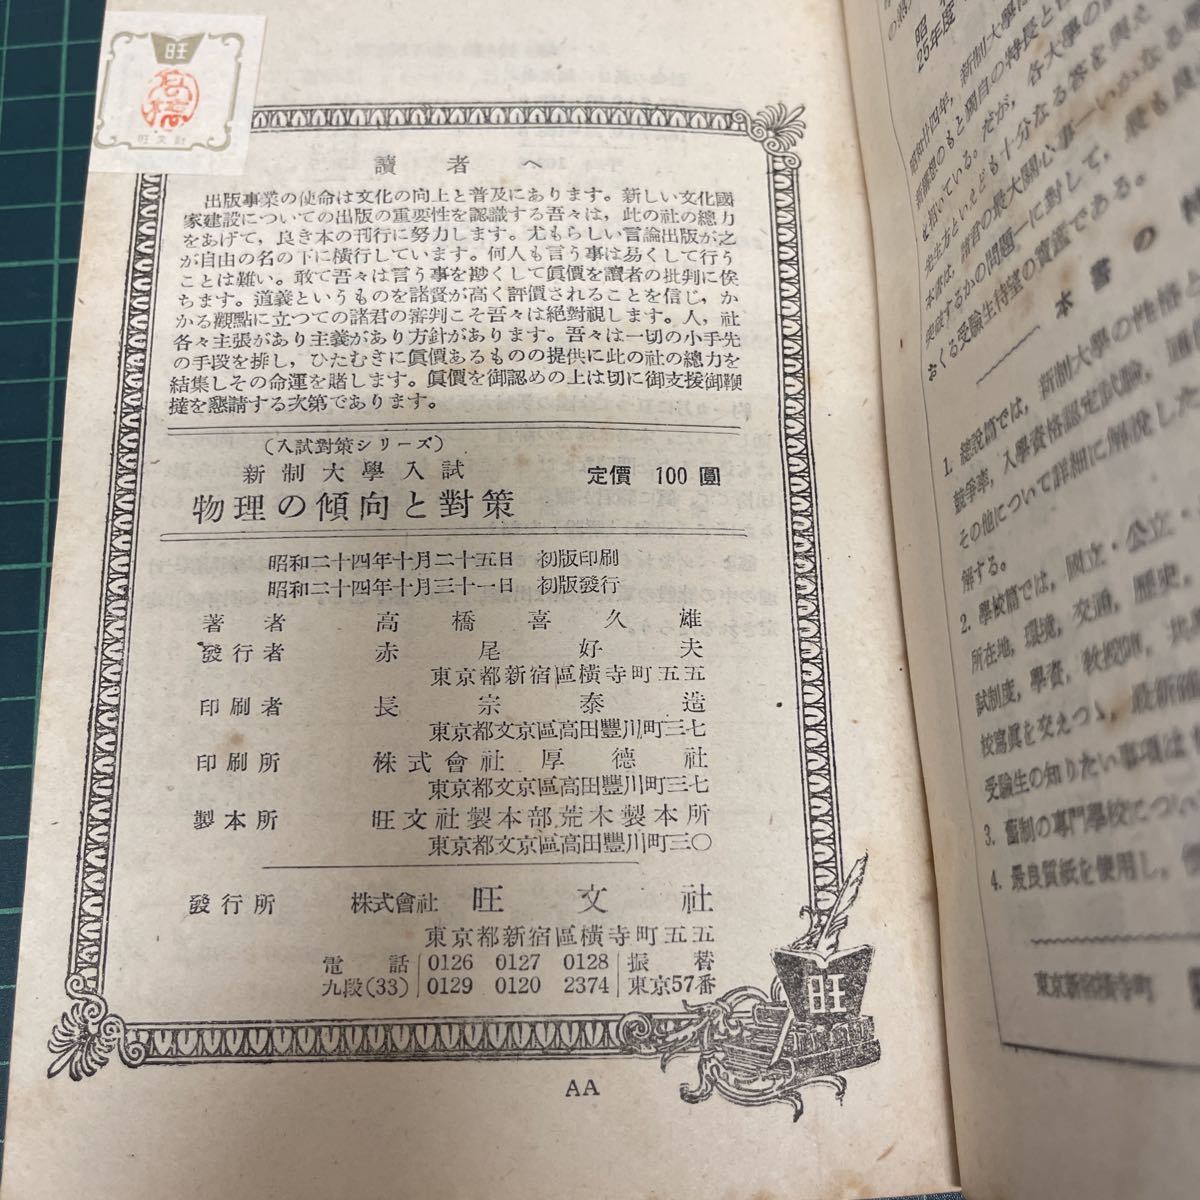 旺
高橋
旺文社
讀者へ
出版事業の使命は文化の向上と普及にあります。新しい文化國
家建設についての出版の重要性を認識する吾々は，此の社の總力
をあげて，良き本の刊行に努力します。尤もらしい言論出版が之
が自由の名の下に横行しています。何人も言う事は易くして行う
ことは難い。敢て吾々は言う事を尠くして眞價を讀者の批判に俟
ちます。道義というものを諸賢が高く評價されることを信じ，か
かる觀點に立つての諸君の審判こそ吾々は絶對視します。人，社
各々主張があり主義があり方針があります。吾々は一切の小手先
の手段を排し，ひたむきに眞價あるものの提供に此の社の總力を
結集しその命運を賭します。眞價を御認めの上は切に御支援御鞭
撻を懇請する次第であります。
（入試對策シリーズ）
新制大學入試
定價 100 圓
物理の傾向と對策
昭和二十四年十月二十五日 初版印刷
昭和二十四年十月三十一日 初版發行
著者 高橋喜久雄
發行者 赤尾好夫
東京都新宿區横寺町五五
印刷者 長宗泰造
東京都文京區高田豐川町三七
印刷所 株式會社 厚德社
東京都文京區高田豐川町三七
製本所 旺文社製本部荒木製本所
東京都文京區高田豐川町三〇
發行所 株式會社 旺文社
東京都新宿區横寺町五五
電話 0126 0127 0128 振替
九段(33) 0129 0120 2374 東京57番
旺
AA
昭
25年度
昭和廿四年，新制大學は
新構想のもと獨自の特長と
を招いている。だが，各大學の
先生方といえども十分なる答を與え
本書は，諸君の最大關心事―いかなる
突破するかの問題―に對して，最も良
おくる受驗生待望の寶鑑である。
本書の特
1. 總説篇では，新制大學の性格と
競爭率，入學資格認定試驗，
その他について詳細に解説した
解する。
2. 學校篇では，國立・公立・
所在地，環境，交通，歴史，
試制度，學資，教授陣，
校寫眞を交えつゝ，最新確
受驗生の知りたい事項は
3. 舊制の專門學校につい
4. 最良質紙を使用し，
東京新宿横寺町